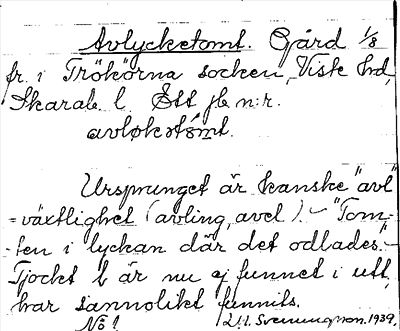 Avlycketomt. Gård 1/8
fr. i Trökörna socken, Viste hrd,
Skarab. l. Ett jb n:r.
avløkətómt.
Ursprunget är kanske "avl"
= växtlighet (avling, avel). - "Tom-
ten i lyckan där det odlades".
Tjockt l är nu ej funnet i utt,
har sannolikt funnits.
No 1 Svenungson. 1939.